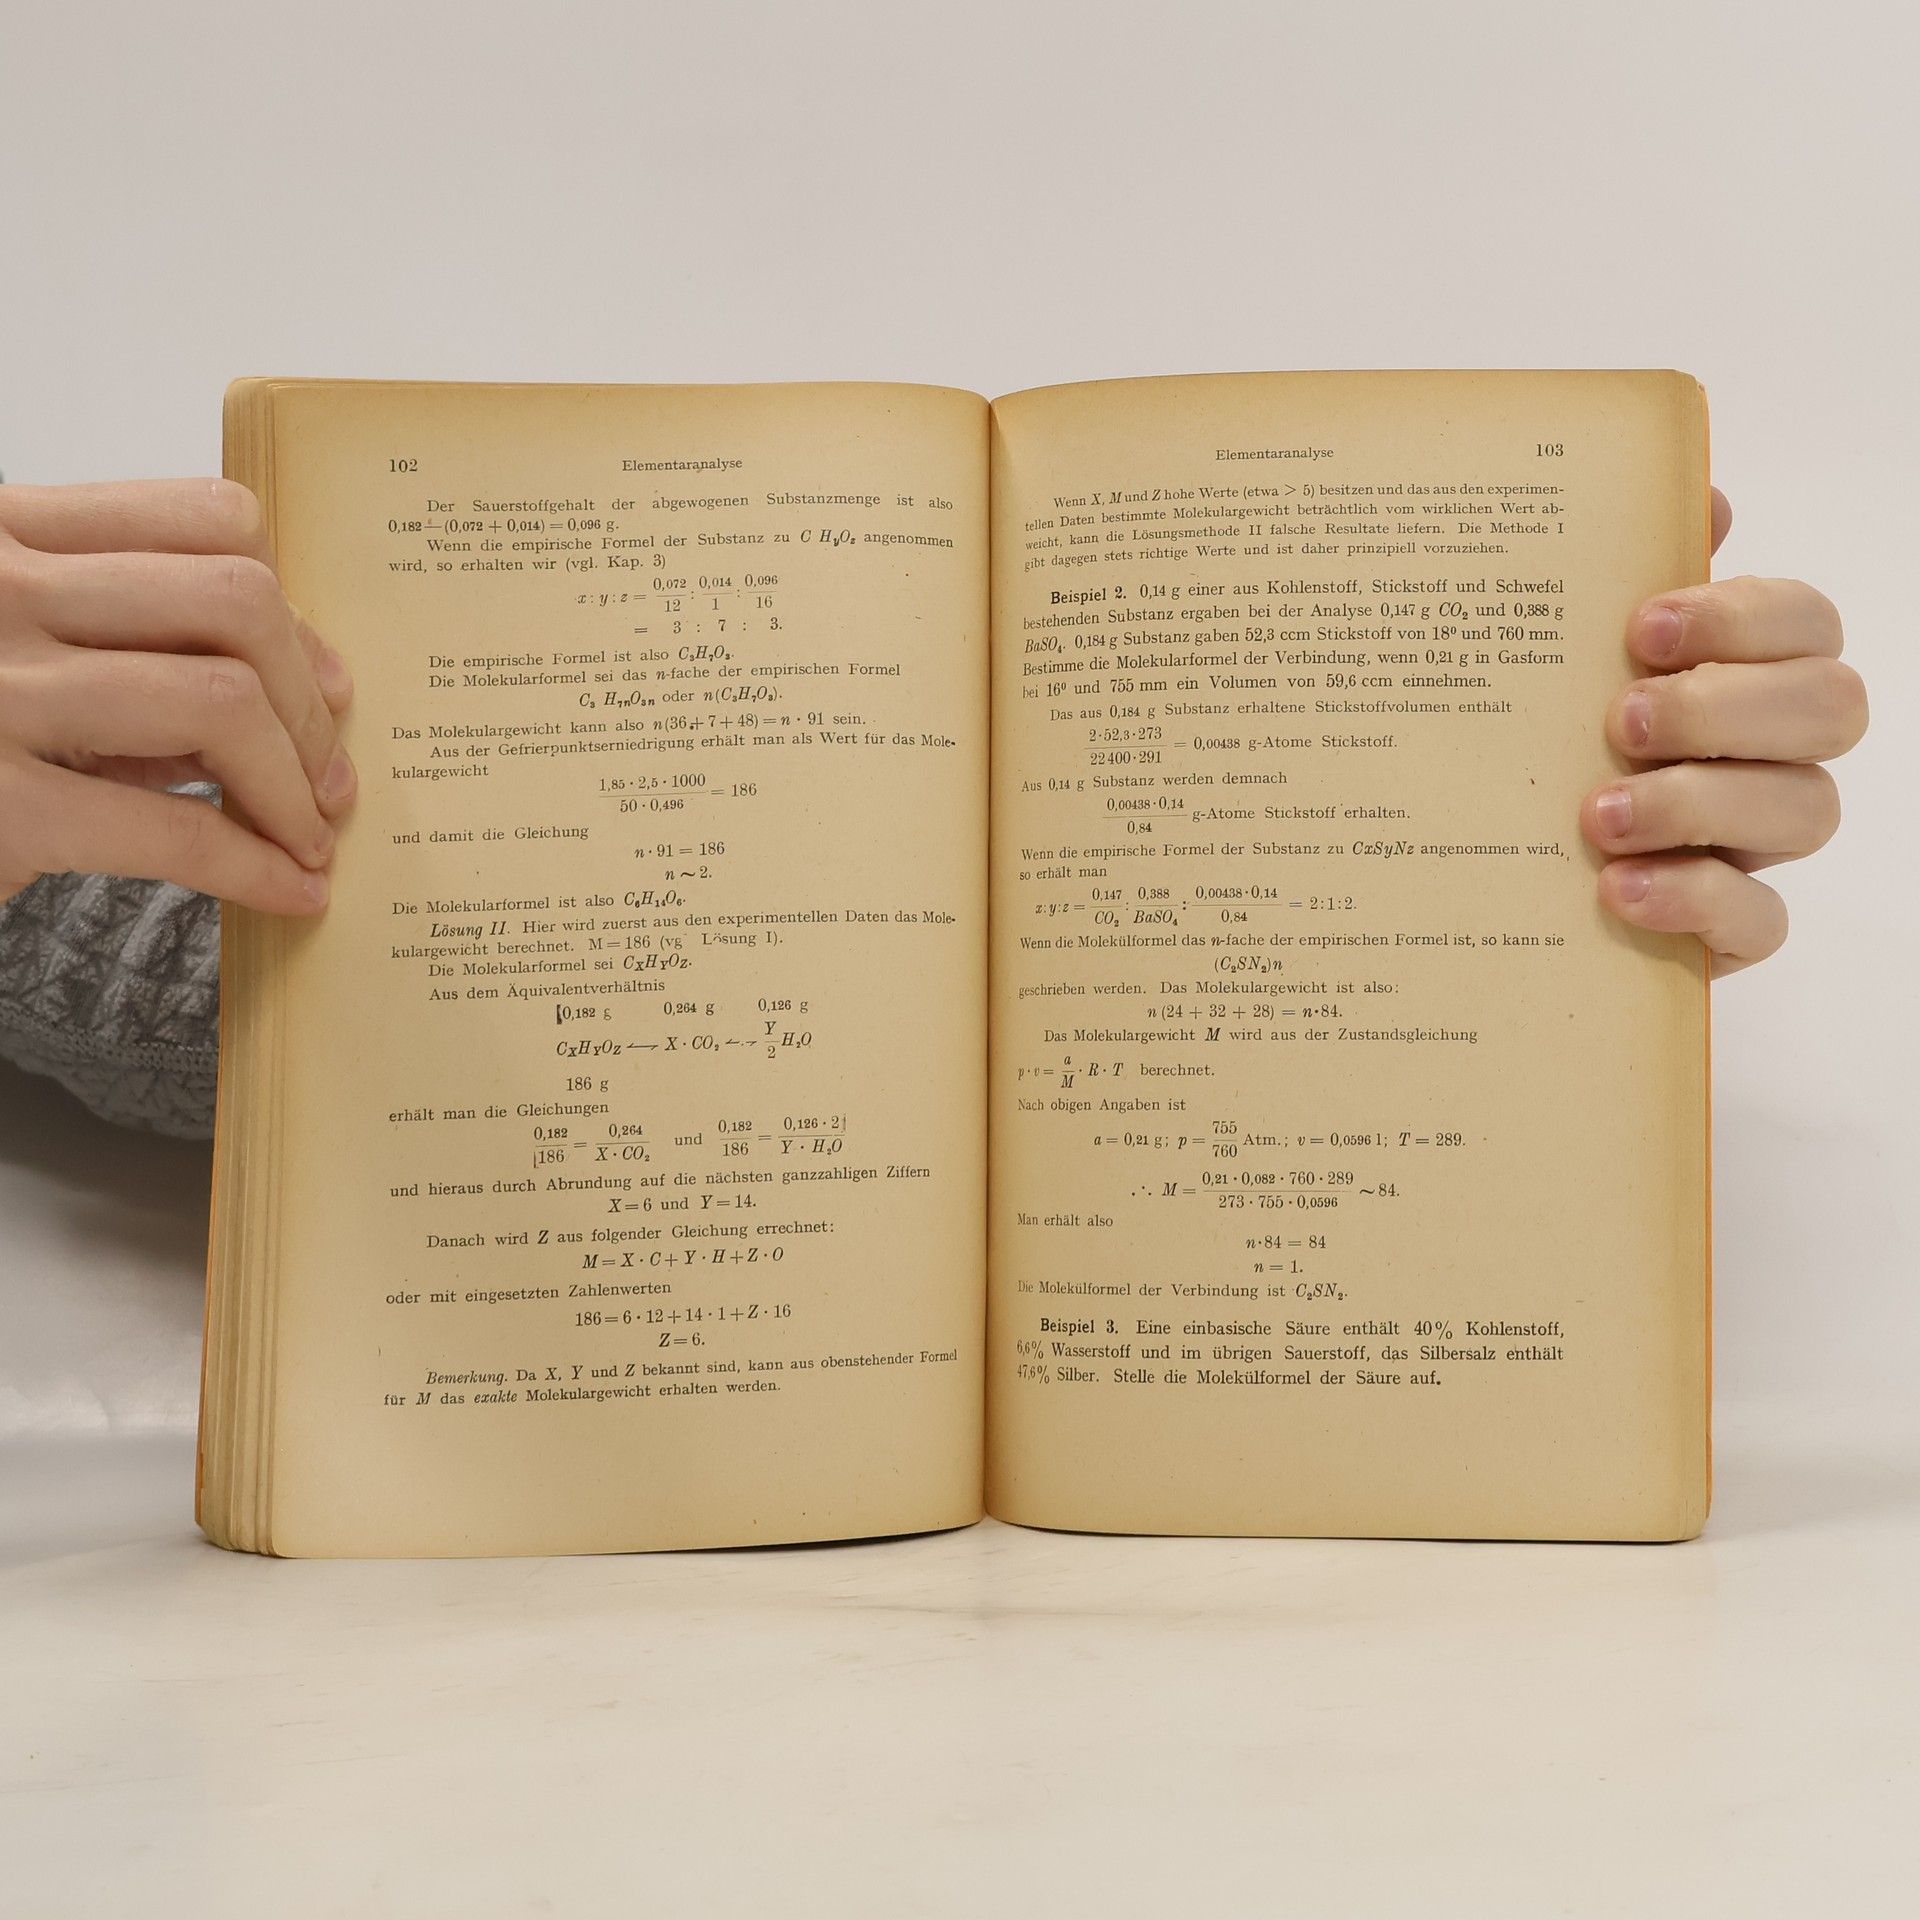 102 Elementaranalyse
Der Sauerstoffgehalt der abgewogenen Substanzmenge ist also
0,182 — (0,072 + 0,014) = 0,096 g.
Wenn die empirische Formel der Substanz zu C HyOz angenommen
wird, so erhalten wir (vgl. Kap. 3)
x : y : z = 0,072/12 : 0,014/1 : 0,096/16
= 3 : 7 : 3.
Die empirische Formel ist also C₃H₇O₃.
Die Molekularformel sei das n-fache der empirischen Formel
C₃ H₇ₙO₃ₙ oder n(C₃H₇O₃).
Das Molekulargewicht kann also n(36 + 7 + 48) = n · 91 sein.
Aus der Gefrierpunktserniedrigung erhält man als Wert für das Mole-
kulargewicht
1,85 · 2,5 · 1000 / 50 · 0,496 = 186
und damit die Gleichung
n · 91 = 186
n ~ 2.
Die Molekularformel ist also C₆H₁₄O₆.
Lösung II. Hier wird zuerst aus den experimentellen Daten das Mole-
kulargewicht berechnet. M = 186 (vg Lösung I).
Die Molekularformel sei CXHYOZ.
Aus dem Äquivalentverhältnis
0,182 g 0,264 g 0,126 g
CXHYOZ ⟵⟶ X · CO₂ ⟵⟶ Y/2 H₂O
186 g
erhält man die Gleichungen
0,182/186 = 0,264/X · CO₂ und 0,182/186 = 0,126 · 2/Y · H₂O
und hieraus durch Abrundung auf die nächsten ganzzahligen Ziffern
X = 6 und Y = 14.
Danach wird Z aus folgender Gleichung errechnet:
M = X · C + Y · H + Z · O
oder mit eingesetzten Zahlenwerten
186 = 6 · 12 + 14 · 1 + Z · 16
Z = 6.
Bemerkung. Da X, Y und Z bekannt sind, kann aus obenstehender Formel
für M das exakte Molekulargewicht erhalten werden.
Elementaranalyse 103
Wenn X, M und Z hohe Werte (etwa > 5) besitzen und das aus den experimen-
tellen Daten bestimmte Molekulargewicht beträchtlich vom wirklichen Wert ab-
weicht, kann die Lösungsmethode II falsche Resultate liefern. Die Methode I
gibt dagegen stets richtige Werte und ist daher prinzipiell vorzuziehen.
Beispiel 2. 0,14 g einer aus Kohlenstoff, Stickstoff und Schwefel
bestehenden Substanz ergaben bei der Analyse 0,147 g CO₂ und 0,388 g
BaSO₄. 0,184 g Substanz gaben 52,3 ccm Stickstoff von 18⁰ und 760 mm.
Bestimme die Molekularformel der Verbindung, wenn 0,21 g in Gasform
bei 16⁰ und 755 mm ein Volumen von 59,6 ccm einnehmen.
Das aus 0,184 g Substanz erhaltene Stickstoffvolumen enthält
2·52,3·273 / 22400·291 = 0,00438 g-Atome Stickstoff.
Aus 0,14 g Substanz werden demnach
0,00438·0,14 / 0,84 g-Atome Stickstoff erhalten.
Wenn die empirische Formel der Substanz zu CxSyNz angenommen wird,
so erhält man
x:y:z = 0,147/CO₂ : 0,388/BaSO₄ : 0,00438·0,14/0,84 = 2:1:2.
Wenn die Molekülformel das n-fache der empirischen Formel ist, so kann sie
(C₂SN₂)n
geschrieben werden. Das Molekulargewicht ist also:
n (24 + 32 + 28) = n·84.
Das Molekulargewicht M wird aus der Zustandsgleichung
p · v = a/M · R · T berechnet.
Nach obigen Angaben ist
a = 0,21 g; p = 755/760 Atm.; v = 0,0596 l; T = 289.
∴ M = 0,21 · 0,082 · 760 · 289 / 273 · 755 · 0,0596 ~ 84.
Man erhält also
n·84 = 84
n = 1.
Die Molekülformel der Verbindung ist C₂SN₂.
Beispiel 3. Eine einbasische Säure enthält 40% Kohlenstoff,
6,6% Wasserstoff und im übrigen Sauerstoff, das Silbersalz enthält
47,6% Silber. Stelle die Molekülformel der Säure auf.